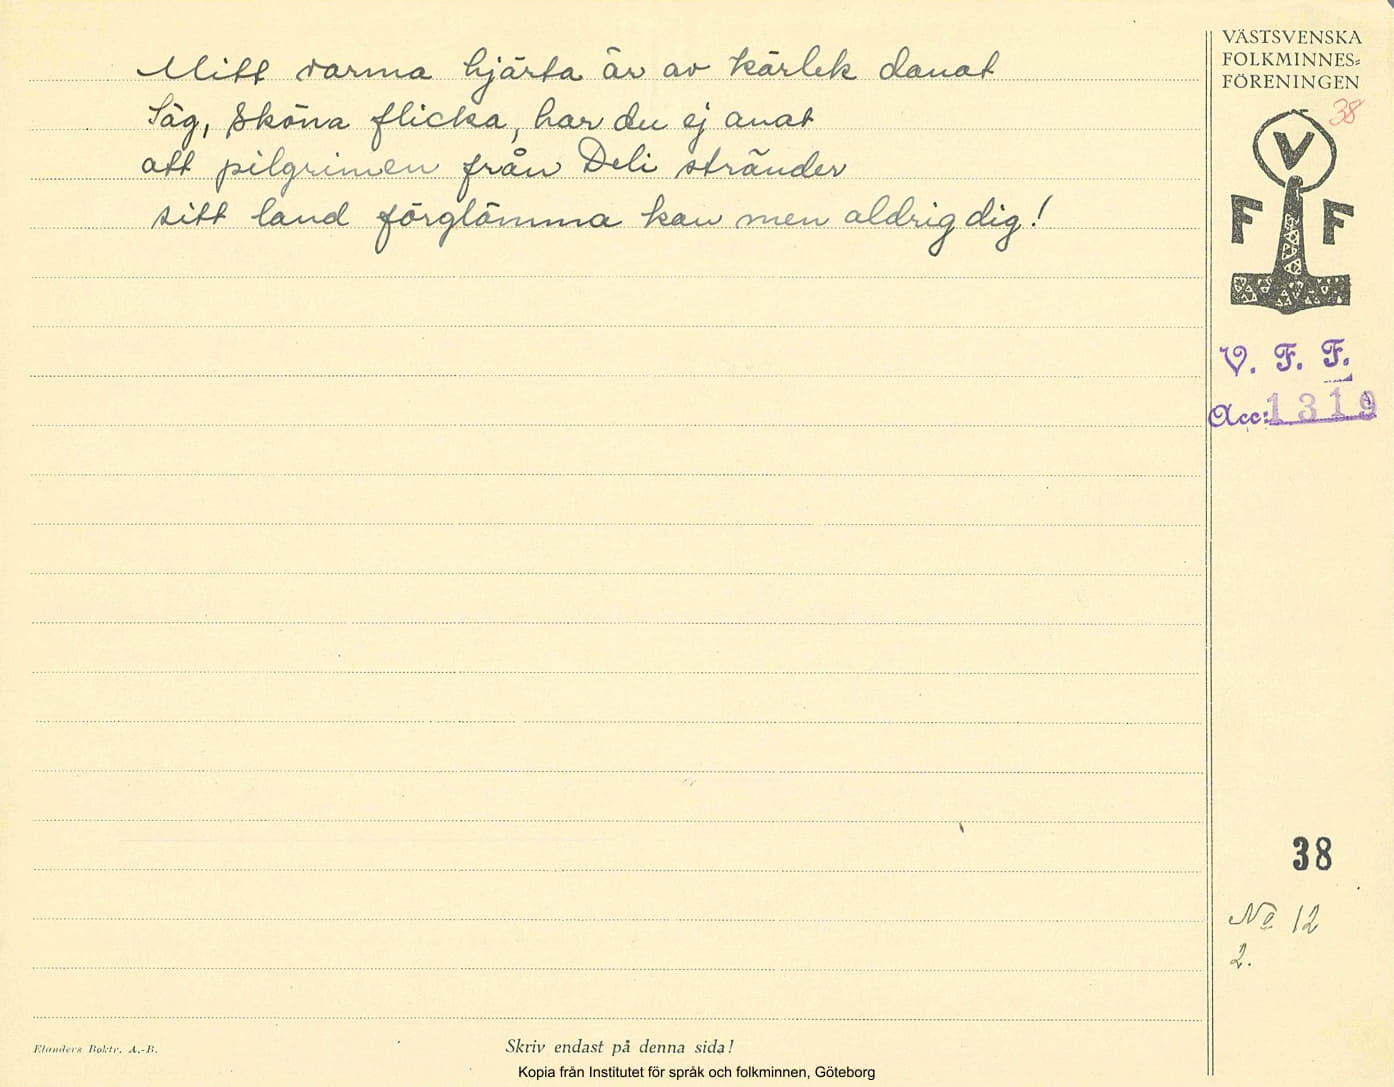 Mitt varma hjärta är av kärlek danat
Säg, sköna flicka, har du ej anat
att pilgrimen från Deli stränder
sitt land förglömma kan men aldrig dig!
VÄSTSVENSKA
FOLKMINNES-
FÖRENINGEN
38
V
F F
V. F. F.
Acc: 1319
38
No 12
2.
Elanders Boktr. A.-B.
Skriv endast på denna sida!
Kopia från Institutet för språk och folkminnen, Göteborg